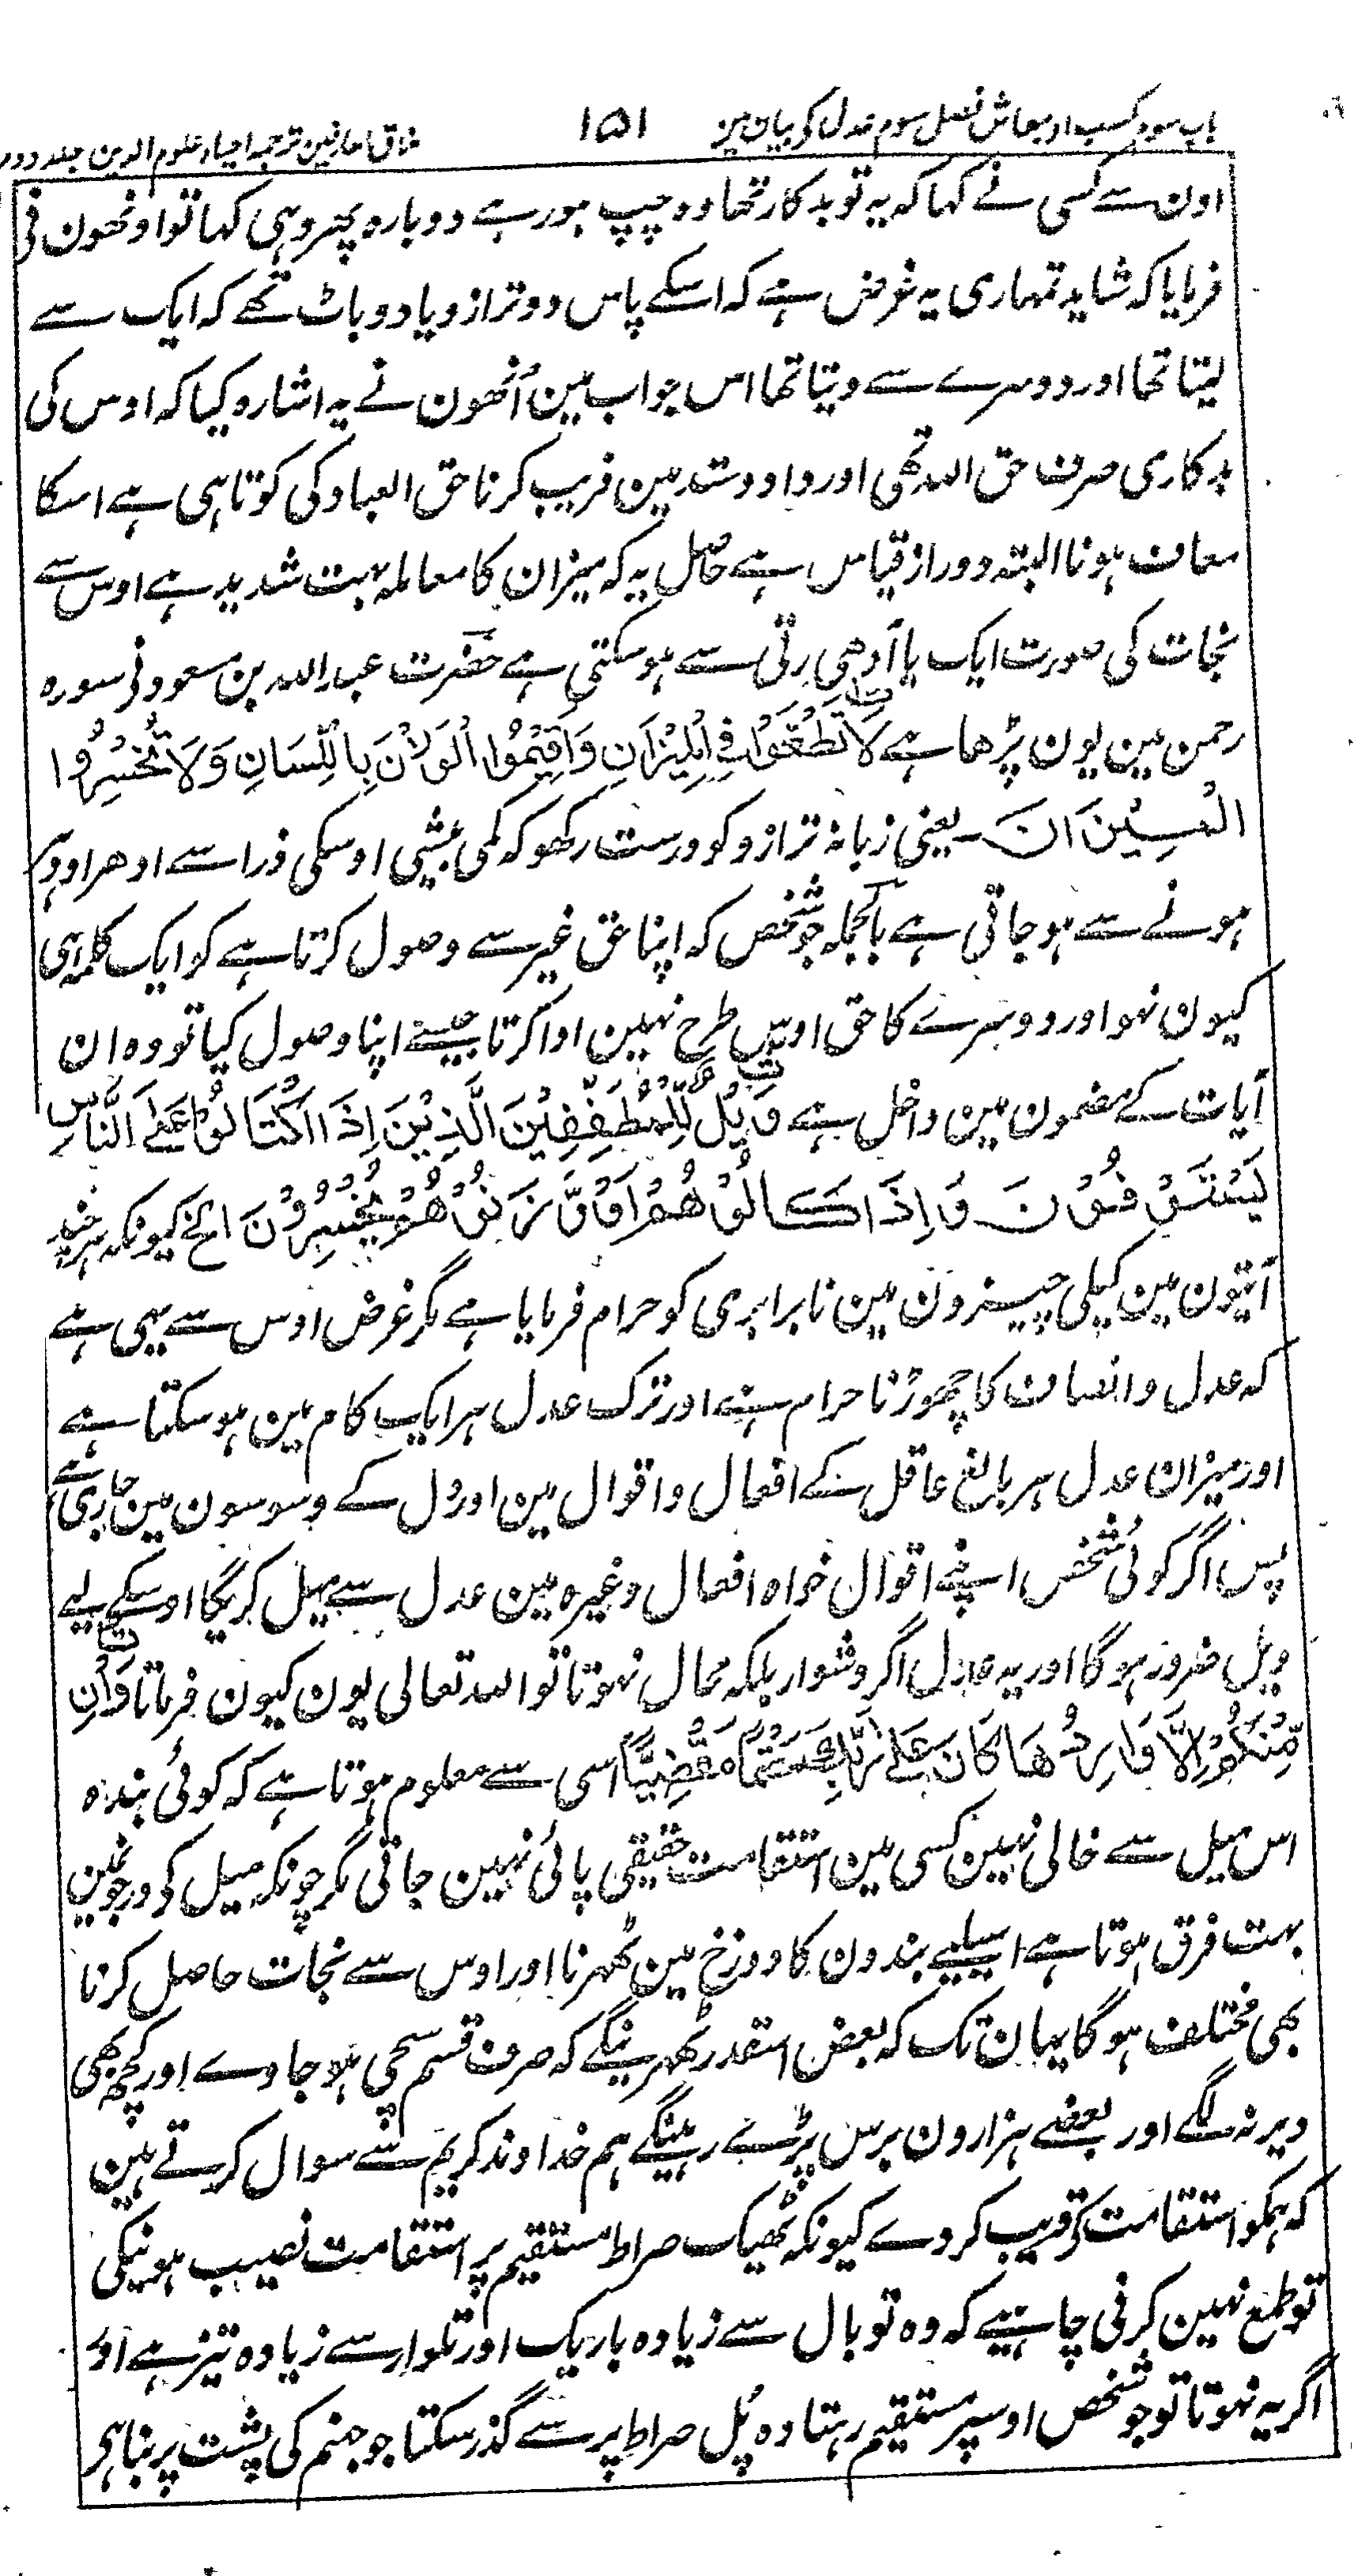 باب سوم کسب اور معاش فصل سوم عدل کی بیان مین ۱۵۱ مذاق العارفین ترجمہ احیاء علوم الدین جلد دوم
اون سے کسی نے کہا کہ یہ تو بدکار تھا وہ چپ ہو رہے دوبارہ پھر وہی کہا تو اونھون نی
فرمایا کہ شاید تمہاری یہ غرض ہے کہ اسکے پاس دو ترازو یا دو باٹ تھے کہ ایک سے
لیتا تھا اور دوسرے سے دیتا تھا اس جواب مین اُنھون نے یہ اشارہ کیا کہ اوس کی
بدکاری صرف حق اللہ تھی اور داد وستد مین فریب کرنا حق العباد کی کوتاہی ہے اسکا
معاف ہونا البتہ دور از قیاس ہے حاصل یہ کہ میزان کا معاملہ بہت شدید ہے اوس سے
نجات کی صورت ایک یا آدھی رتی سے ہو سکتی ہے حضرت عبد اللہ بن مسعود نی سورہ
رحمن مین یون پڑھا ہے لَا تَطْغَوْا فِي الْمِيْزَانِ وَاَقِيْمُوا الْوَزْنَ بِاللِّسَانِ وَلَا تُخْسِرُوا
الْمِيْزَانَ ۔ یعنی زبانہ ترازو کو درست رکھو کہ کمی بیشی اوسکی ذرا سے ادھر اودہر
ہونے سے ہو جاتی ہے بالجملہ جو شخص کہ اپنا حق غیر سے وصول کرتا ہے گو ایک کلمہ ہی
کیون نہو اور دوسرے کا حق اوس طرح نہین ادا کرتا جیسے اپنا وصول کیا تو وہ ان
آیات کے مضمون مین داخل ہے وَيْلٌ لِّلْمُطَفِّفِيْنَ الَّذِيْنَ اِذَا اكْتَالُوْا عَلَى النَّاسِ
يَسْتَوْفُوْنَ وَ اِذَا كَالُوْهُمْ اَوْ وَّزَنُوْهُمْ يُخْسِرُوْنَ الخ کیونکہ ہر چند
آیتون مین کیلی چیزون مین نابرابری کو حرام فرمایا ہے مگر غرض اوس سے یہی ہے
کہ عدل و انصاف کا چھوڑنا حرام ہے اور ترک عدل ہر ایک کام مین ہو سکتا ہے
اور میزان عدل ہر بالغ عاقل کے افعال و اقوال مین اور دل کے وسوسون مین جاری ہے
پس اگر کوئی شخص اپنے اقوال خواہ افعال وغیرہ مین عدل سے میل کریگا اوسکے لیے
ویل ضرور ہو گا اور یہ عدل اگر دشوار بلکہ محال نہوتا تو اللہ تعالی یون کیون فرماتا وَاِنْ
مِّنْكُمْ اِلَّا وَارِدُهَا كَانَ عَلٰى رَبِّكَ حَتْمًا مَّقْضِيًّا اسی سے معلوم ہوتا ہے کہ کوئی بندہ
اس میل سے خالی نہین کسی مین استقامت حقیقی پائی نہین جاتی مگر چونکہ میل کو درجونمین
بہت فرق ہوتا ہے اسیلیے بندون کا دوزخ مین ٹھہرنا اور اوس سے نجات حاصل کرنا
بھی مختلف ہو گا یہان تک کہ بعض اسقدر ٹھہرینگے کہ صرف قسم سچی ہو جاوے اور کچھ بھی
دیر نہ لگے اور بعضے ہزارون برس پڑے رہینگے ہم خداوند کریم سے سوال کرتے ہین
کہ ہمکو استقامت کی قریب کر دے کیونکہ ٹھیک صراط مستقیم پر استقامت نصیب ہونیکی
تو طمع نہین کرنی چاہیے کہ وہ تو بال سے زیادہ باریک اور تلوار سے زیادہ تیز ہے اور
اگر یہ نہوتا تو جو شخص اوسپر مستقیم رہتا وہ پُل صراط پر سے گذر سکتا جو جہنم کی پشت پر بنا ہی